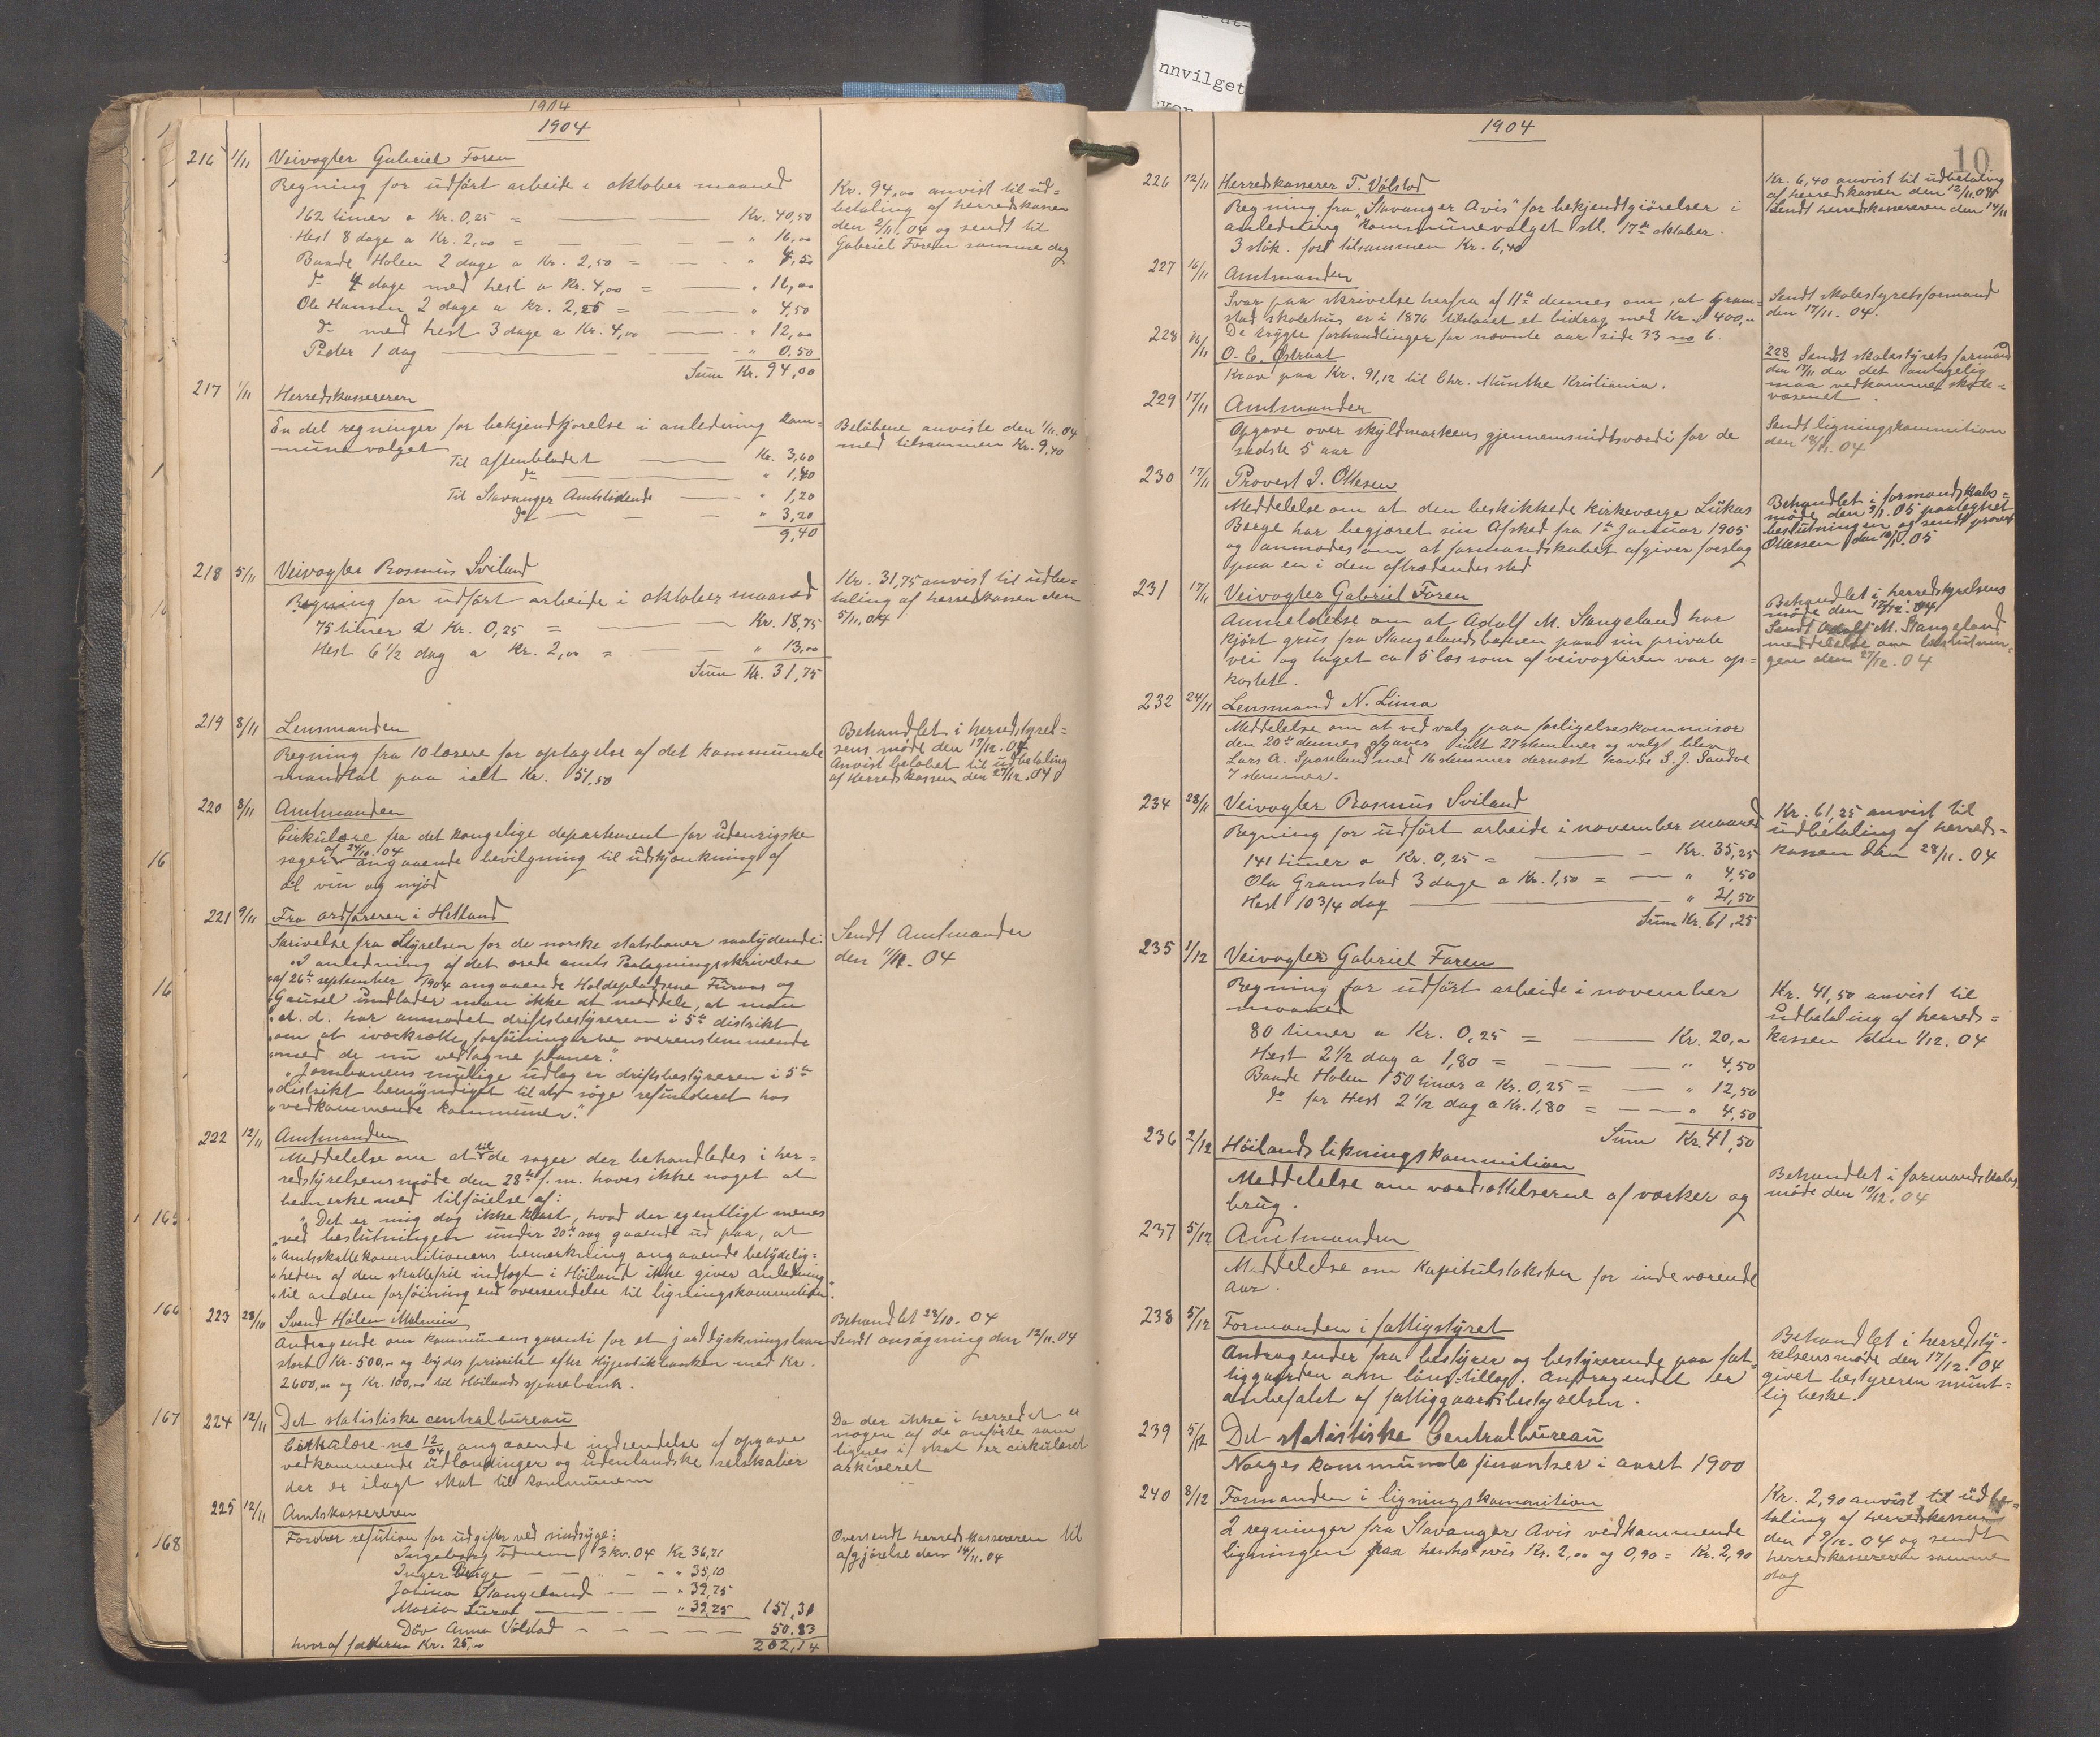 nnvilget
1904
1904
216 1/11 Veivogter Gabriel Foren
Regning for udført arbeide i oktober maaned
162 timer a Kr. 0,25 = Kr. 40,50
Hest 8 dage a Kr. 2,00 = " 16,00
Baarde Holen 2 dage a Kr. 2,50 = "
do 4 dage med hest a Kr. 4,00 = " 16,00
Ole Hansen 2 dage a Kr. 2,25 = " 4,50
do med hest 3 dage a Kr. 4,00 " 12,00
Peder 1 dag " 0,50
Sum Kr. 94,00
Kr. 94,00 anvist til ud=
betaling af herredskassen
den 2/11.04 og sendt til
Gabriel Foren samme dag
217 1/11 Herredskassereren
En del regninger for bekjendtgjørelse i anledning kom=
munevalget
Til aftenbladet Kr. 3,60
do " 1,40
Til Stavanger Amtstidende " 1,20
do " 3,20
9,40
Beløbene anviste den 1/11.04
med tilsammen Kr. 9,40
218 5/11 Veivogter Rasmus Sviland
Regning for udført arbeide i oktober maaned
75 timer a Kr. 0,25 = Kr. 18,75
Hest 6 1/2 dag a Kr. 2,00 = " 13,00
Sum Kr. 31,75
Kr. 31,75 anvist til udbe=
taling af herredskassen den
5/11.04
219 8/11 Lensmanden
Regning fra 10 lærere for optagelse af det kommunale
mandtal paa ialt Kr. 51,50
Behandlet i herredstyrel=
sens møde den 17/12.04
Anvist beløbet til udbetaling
af Herredskassen den 27/12.04
220 8/11 Amtmanden
Cirkulære fra det kongelige departement for udenrigske
sager af 24/10.04 angaaende bevilgning til udskjænkning af
øl vin og mjød
221 9/11 Fra ordføreren i Hetland
Skrivelse fra Styrelsen for de norske statsbaner saalydende:
"I anledning af det ærede amts Paategningsskrivelse
"af 26de september 1904 angaaende Holdepladsene Furuaas og
"Gausel undlader man ikke at meddele, at man
"d. d. har anmodet driftsbestyreren i 5te distrikt
"om at iværksætte forføiningerne overenstemmende
"med de nu vedtagne planer."
"Jernbanens mulige udlæg er driftsbestyreren i 5te
"distrikt bemyndiget til at søge refunderet hos
"vedkommende kommuner."
Sendt Amtmanden
den 11/11.04
222 12/11 Amtmanden
Meddelelse om at til de sager der behandledes i her=
redstyrelsens møde den 28de f. m. haves ikke noget at
bemerke med tilføielse af:
"Det er mig dog ikke klart, hvad der egentligt menes
"ved beslutningen under 20de sag gaaende ud paa, at
"Amtsskattekommitionens bemerkning angaaende betydelig=
"heden af den skattefrie indtægt i Høiland ikke giver anledning
"til anden forføining end oversendelse til ligningskommitionen".
223 28/10 Svend Hølen Malmin
Andragende om kommunens garanti for et jorddyrkningslaan
stort Kr. 500,00 og bydes prioritet efter Hypotekbanken med Kr.
2600,00 og Kr. 100,00 til Høilands sparebank.
Behandlet 28/10.04
Sendt ansøgning den 12/11.04
224 12/11 Det statistiske centralbureau
Cirkulære no 12/04 angaaende indsendelse af opgave
vedkommende udlændinger og udenlandske selskabier
der er ilagt skat til kommunen
Da der ikke i herredet er
nogen af de anførte som
lignes i skat er cirkulæret
arkiveret
225 12/11 Amtskassereren
Fordrer refution for udgifter ved sindsyge:
Ingeborg Todnem 3 kv. 04 Kr 36,21
Inger Berge " " 35,10
Jorina Stangeland " 39,75
Maria Lura " 39,25 151,31
Døv Anna Vølstad 50,83
hvoraf fatteren Kr. 25,00 202,14
Oversendt herredskassereren til
afgjørelse den 14/11.04
16
16
165
166
167
168
1904
10
226 12/11 Herredskasserer T. Vølstad
Regning fra "Stavanger Avis" for bekjendtgjørelser i
anledning kommunevalget stl. 17de oktober.
3 stk. for tilsammen Kr. 6,40
Kr. 6,40 anvist til udbetaling
af herredskassen den 12/11.04
Sendt herredskassereren den 14/11
227 16/11 Amtmanden
Svar paa skrivelse herfra af 11te dennes om, at Gram=
stad skolehus er i 1876 tilstaaet et bidrag med Kr. 400,00
De trygte forhandlinger for nævnte aar side 33 no 6.
Sendt skolestyretsformand
den 17/11.04.
228 16/11 O. C. Østraat
Krav paa Kr. 91,12 til Chr. Munthe Kristiania.
228 Sendt skolestyrets formand
den 17/11 da det antagelig
maa vedkomme skole=
væsenet.
229 17/11 Amtmanden
Opgave over skyldmarkens gjennemsnidtsværdi for de
sidste 5 aar
Sendt ligningskommition
den 18/11.04
230 17/11 Provest J. Ottesen
Meddelelse om at den beskikkede kirkeværge Lukas
Berge har begjæret sin Afsked fra 1ste Januar 1905
og anmodes om at formandskabet afgiver forslag
paa en i den aftrædendes sted
Behandlet i formandskabs=
møde den 9/1.05 paategnet
beslutningen og sendt provst
Ottessen den 10/1.05
231 17/11 Veivogter Gabriel Foren
Anmeldelse om at Adolf M. Stangeland har
kjørt grus fra Stangelandsbakken paa sin private
vei og taget ca 5 læs som af veivogteren var op=
kastet.
Behandlet i herredstyrelsens
møde den 17/12.04
Sendt Adolf M. Stangeland
meddelelse om beslutnin=
gen den 27/12.04
232 24/11 Lensmand N. Lima
Meddelelse om at ved valg paa forligelseskommisær
den 20de dennes afgaves ialt 27 stemmer og valgt blev
Lars A. Spaneland med 16 stemmer dernæst havde S. J. Sandve
7 stemmer.
234 28/11 Veivogter Rasmus Sviland
Regning for udført arbeide i november maaned
141 timer a Kr. 0,25 = Kr. 35,25
Ola Gramstad 3 dage a Kr. 1,50 = " 4,50
Hest 10 3/4 dag " 21,50
Sum Kr. 61,25
Kr. 61,25 anvist til
udbetaling af herreds=
kassen den 28/11.04
235 1/12 Veivogter Gabriel Foren
Regning for udført arbeide i november
maaned
80 timer a Kr. 0,25 = Kr. 20,00
Hest 2 1/2 dag a 1,80 = " 4,50
Baarde Holen 50 timer a Kr. 0,25 = " 12,50
do for Hest 2 1/2 dag a Kr. 1,80 = " 4,50
Sum Kr. 41,50
Kr. 41,50 anvist til
udbetaling af herreds=
kassen den 1/12.04
236 2/12 Høilands likningskommition
Meddelelse om værdisættelserne af værker og
brug.
Behandlet i formandskabs
møde den 10/12.04
237 5/12 Amtmanden
Meddelelse om Kapitulstaksten for indeværende
aar.
238 5/12 Formanden i fattigstyret
Andragender fra bestyrer og bestyrerinde paa fat=
tiggaarden om løns-tillæg. Andragendet er
anbefalet af fattiggaardsbestyrelsen.
Behandlet i herredsty-
relsens møde den 17/12.04
givet bestyreren munt=
lig beske.
239 5/12 Det statistiske Centralbureau
Norges kommunale finantser i aaret 1900
240 8/12 Formanden i ligningskommition
2 regninger fra Stavanger Avis vedkommende
ligningen paa henholdsvis Kr. 2,00 og 0,90 = Kr. 2,90
Kr. 2,90 anvist til udbe=
taling af herredskassen
den 9/12.04 og sendt
herredskassereren samme
dag